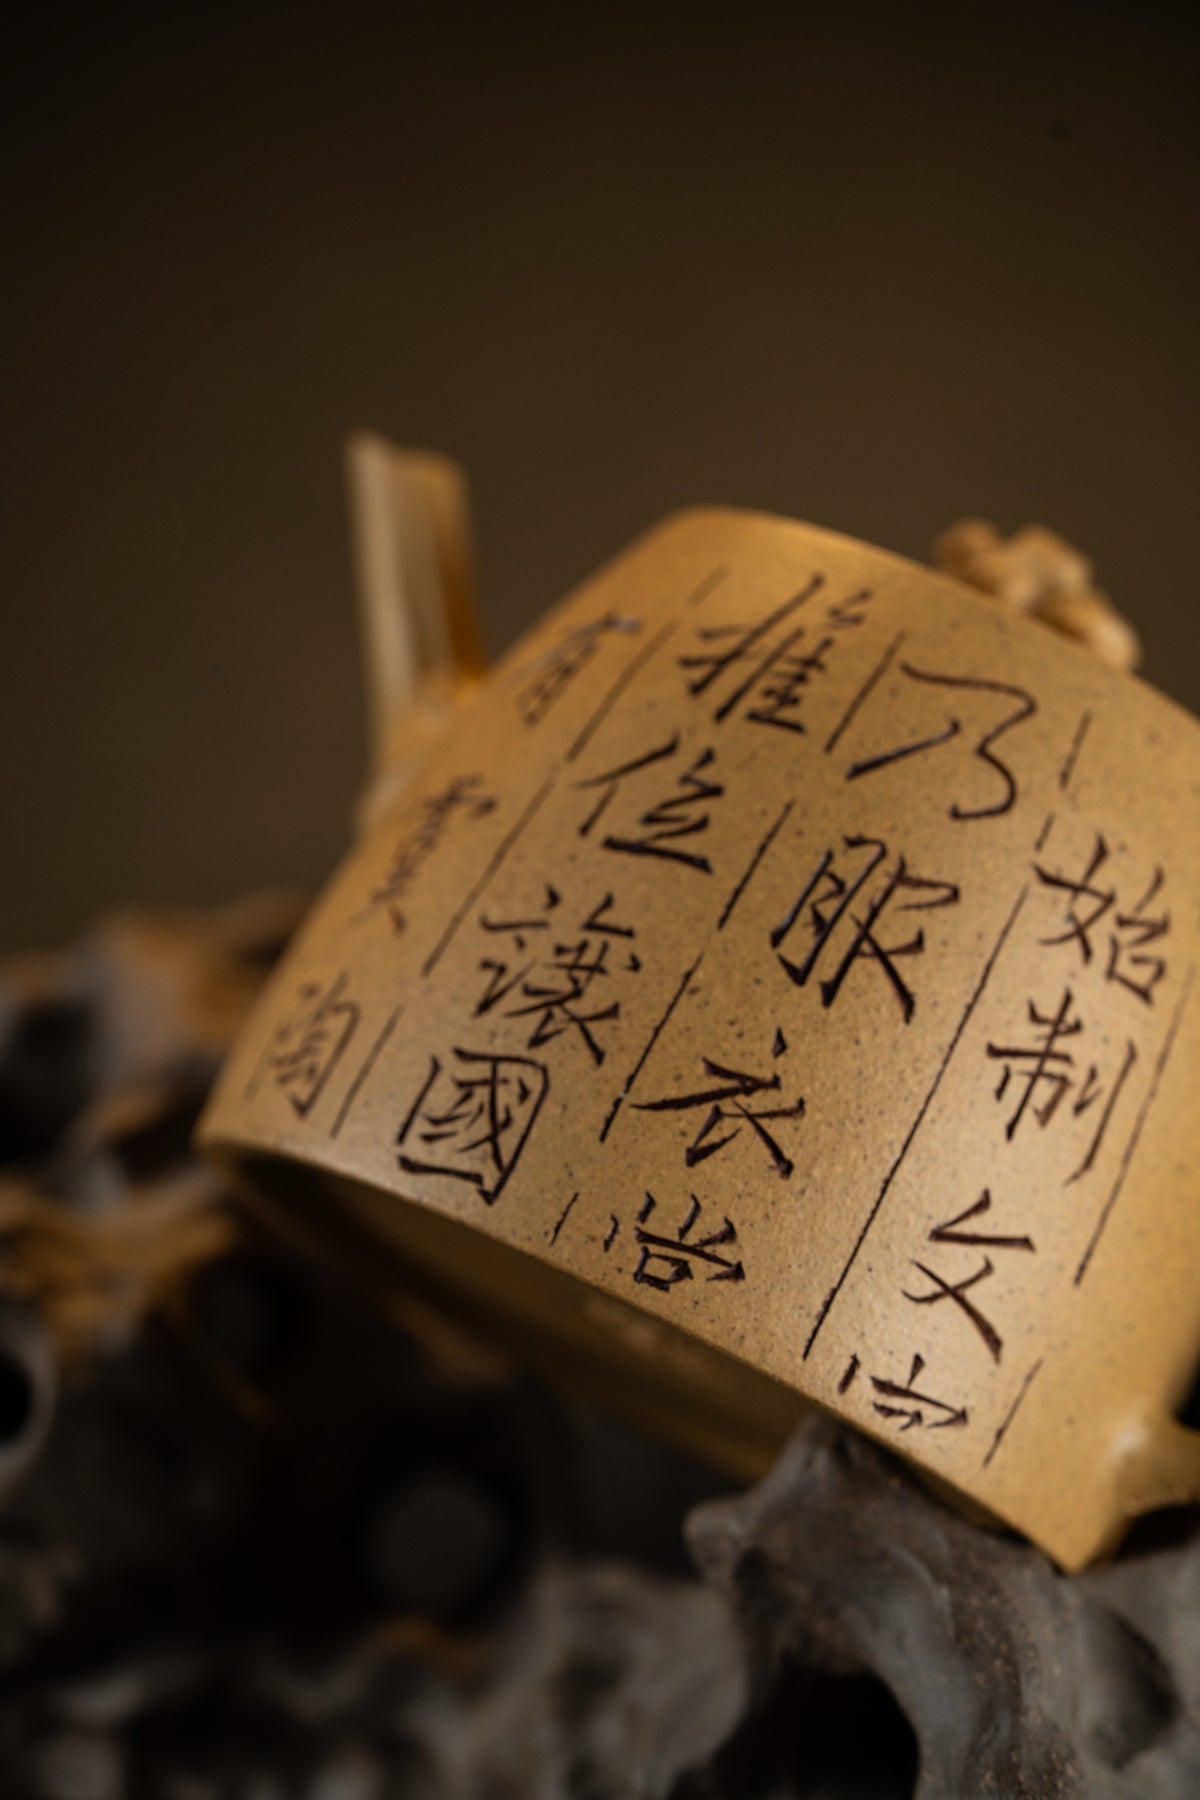 始制文字
乃服衣裳
推位讓國
有虞陶